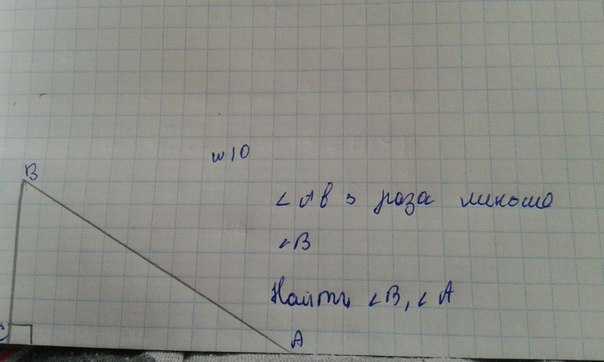 №10
B
∠A в 3 раза меньше
∠B
Найти ∠B, ∠A
A